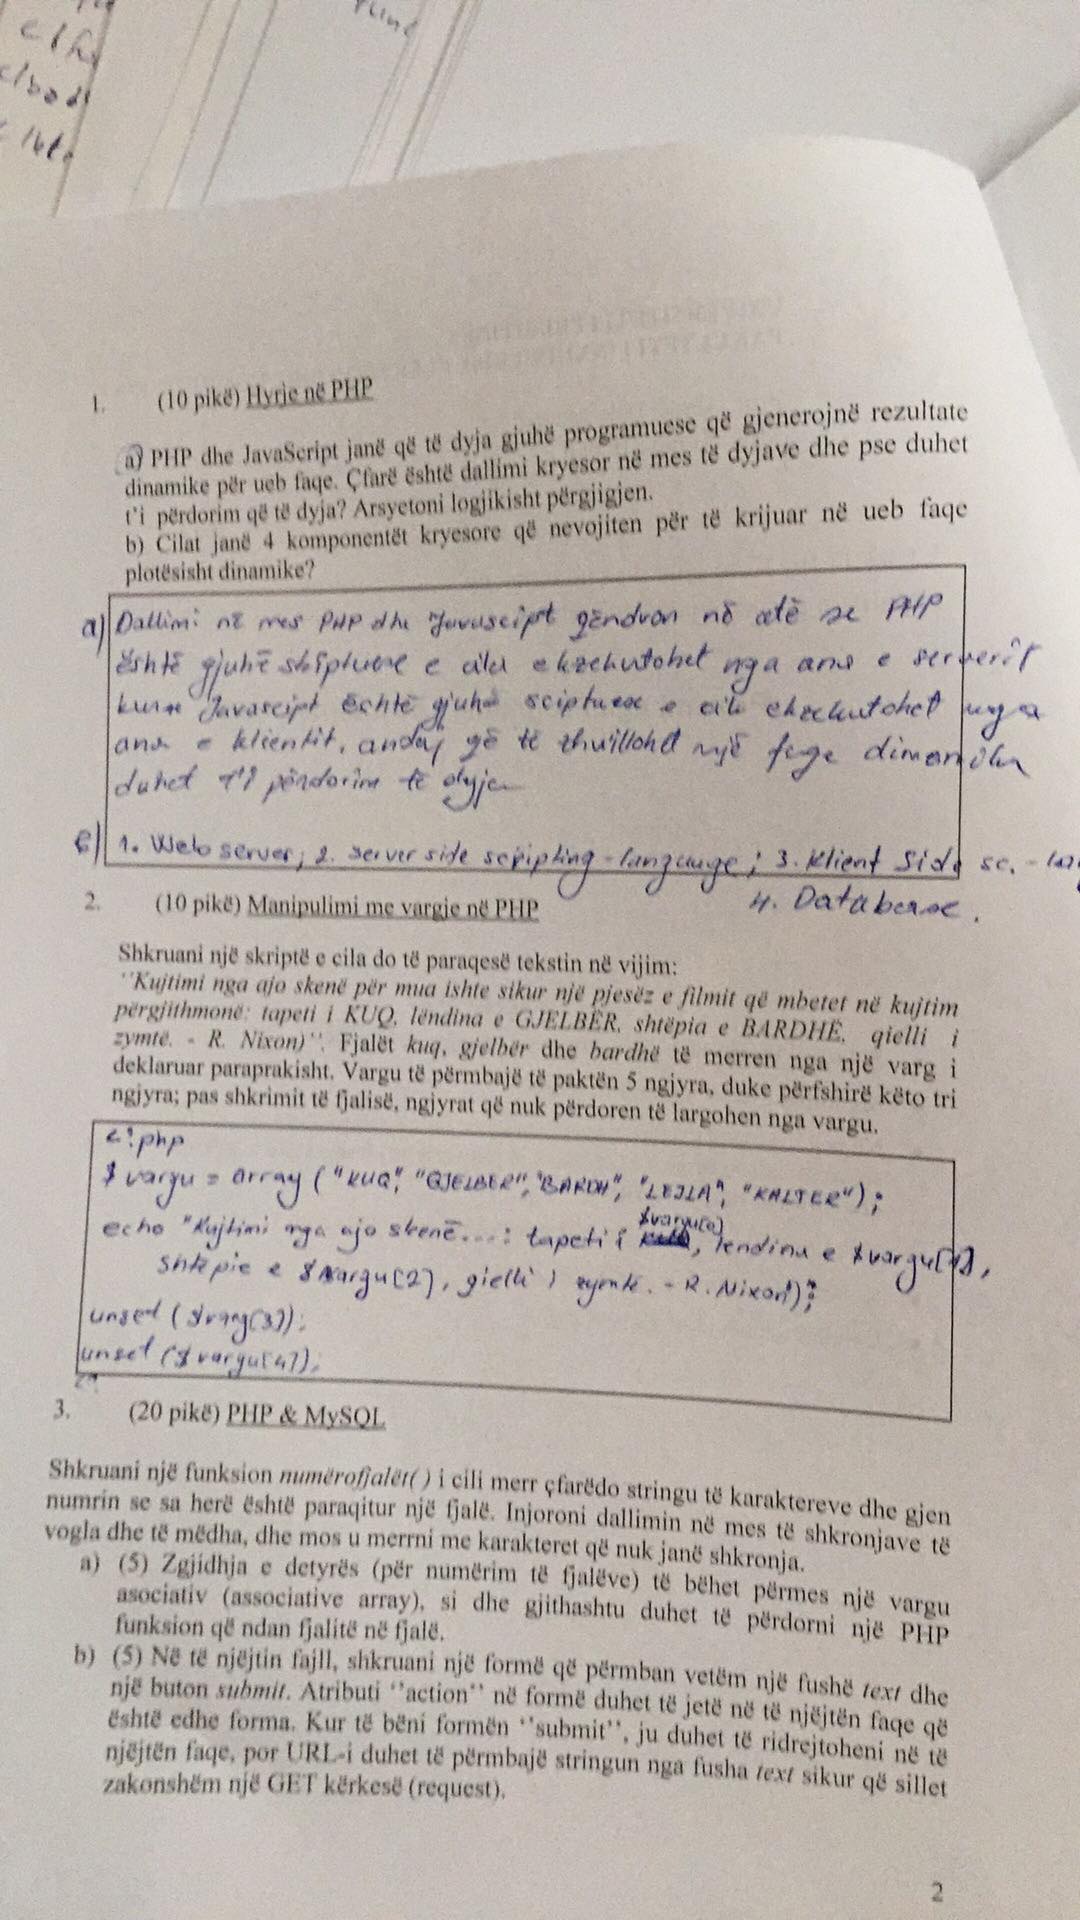 1. (10 pikë) Hyrje në PHP
a) PHP dhe JavaScript janë që të dyja gjuhë programuese që gjenerojnë rezultate
dinamike për ueb faqe. Çfarë është dallimi kryesor në mes të dyjave dhe pse duhet
t'i përdorim që të dyja? Arsyetoni logjikisht përgjigjen.
b) Cilat janë 4 komponentët kryesore që nevojiten për të krijuar në ueb faqe
plotësisht dinamike?
a) Dallimi në mes PHP dhe Javascipt qëndron në atë se PHP
është gjuhë skriptuese e cila ekzekutohet nga ana e serverit
kurse Javascipt është gjuhë sciptuese e cila ekzekutohet nga
ana e klientit, andaj që të zhvillohet një faqe dimanike
duhet t'i përdorim të dyja
b) 1. Web server; 2. server side scripting-language; 3. Klient Side sc. -
4. Database.
2. (10 pikë) Manipulimi me vargje në PHP
Shkruani një skriptë e cila do të paraqesë tekstin në vijim:
''Kujtimi nga ajo skenë për mua ishte sikur një pjesëz e filmit që mbetet në kujtim
përgjithmonë: tapeti i KUQ, lëndina e GJELBËR, shtëpia e BARDHË, qielli i
zymtë. - R. Nixon)''. Fjalët kuq, gjelbër dhe bardhë të merren nga një varg i
deklaruar paraprakisht. Vargu të përmbajë të paktën 5 ngjyra, duke përfshirë këto tri
ngjyra; pas shkrimit të fjalisë, ngjyrat që nuk përdoren të largohen nga vargu.
<?php
$vargu = array ("KUQ", "GJELBER", "BARDH", "LEJLA", "KALTER");
echo "Kujtimi nga ajo skenë...: tapeti i $vargu[0], lendina e $vargu[1],
shtepie e $vargu[2], qielli i zymtë. - R. Nixon)";
unset ($varg[3]);
unset ($vargu[4]);
?>
3. (20 pikë) PHP & MySQL
Shkruani një funksion numërofjalët( ) i cili merr çfarëdo stringu të karaktereve dhe gjen
numrin se sa herë është paraqitur një fjalë. Injoroni dallimin në mes të shkronjave të
vogla dhe të mëdha, dhe mos u merrni me karakteret që nuk janë shkronja.
a) (5) Zgjidhja e detyrës (për numërim të fjalëve) të bëhet përmes një vargu
asociativ (associative array), si dhe gjithashtu duhet të përdorni një PHP
funksion që ndan fjalitë në fjalë.
b) (5) Në të njëjtin fajll, shkruani një formë që përmban vetëm një fushë text dhe
një buton submit. Atributi ''action'' në formë duhet të jetë në të njëjtën faqe që
është edhe forma. Kur të bëni formën ''submit'', ju duhet të ridrejtoheni në të
njëjtën faqe, por URL-i duhet të përmbajë stringun nga fusha text sikur që sillet
zakonshëm një GET kërkesë (request).
2